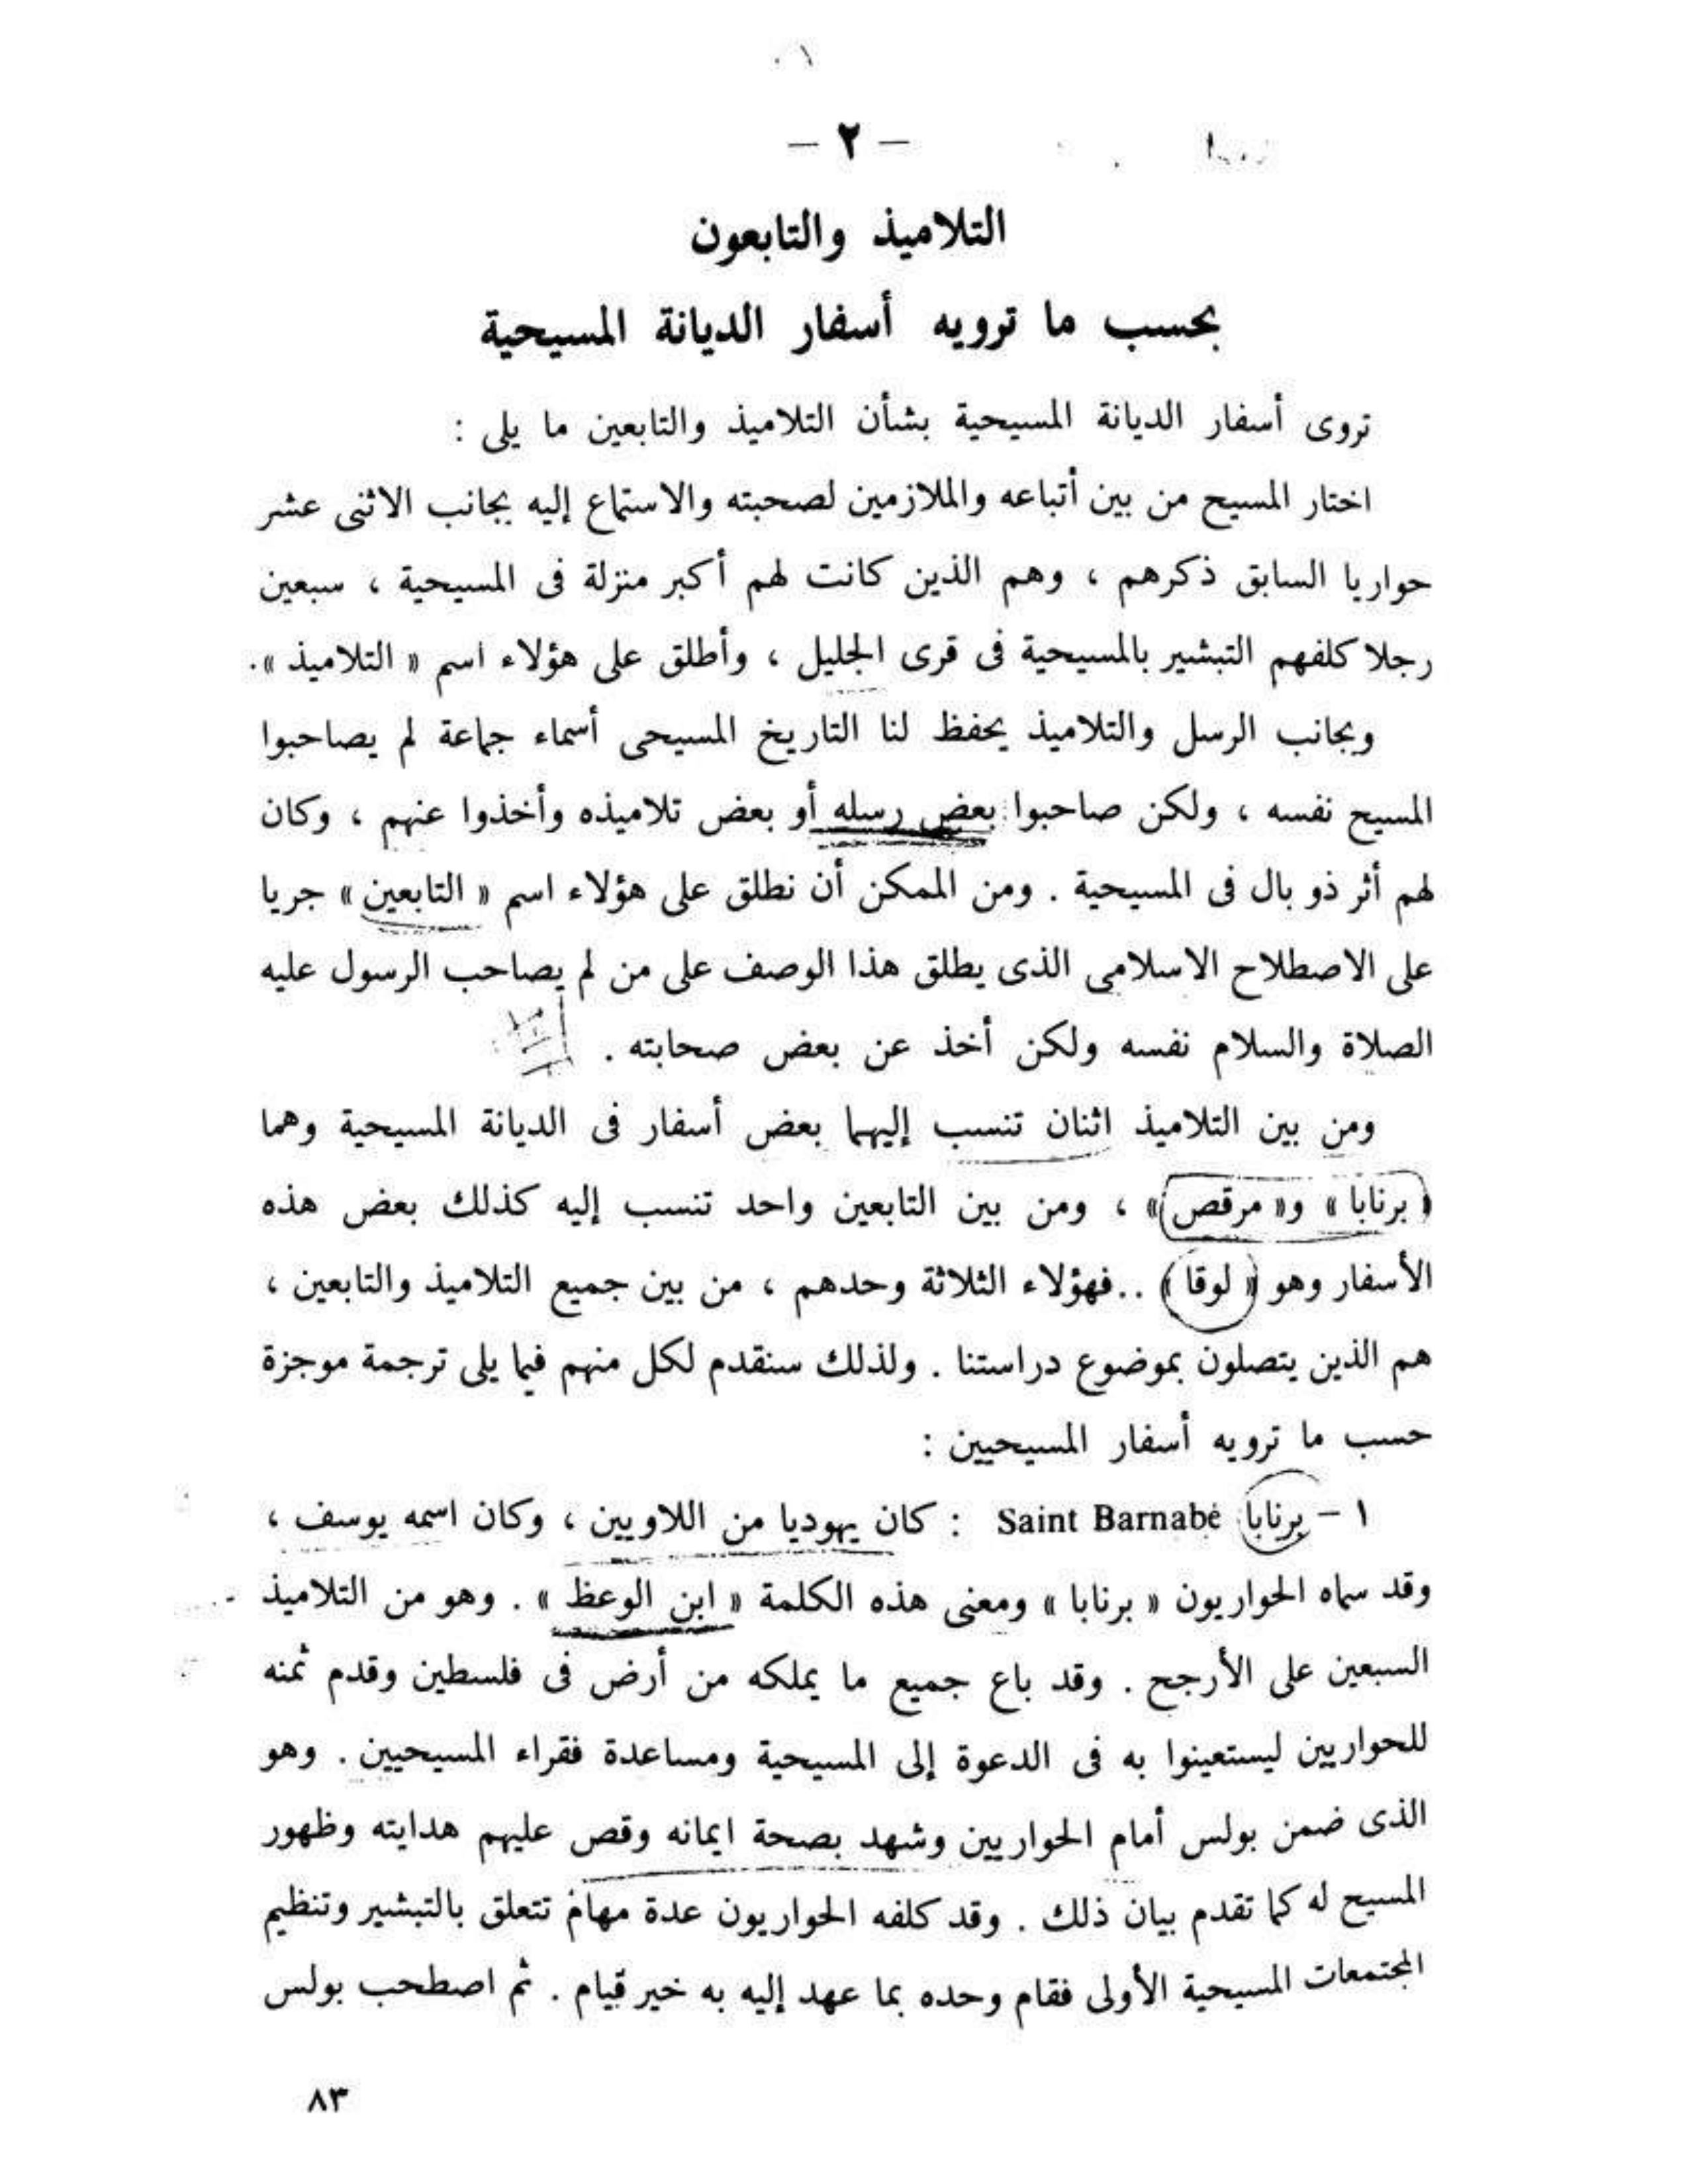 — ٢ —
التلاميذ والتابعون
بحسب ما ترويه أسفار الديانة المسيحية
تروى أسفار الديانة المسيحية بشأن التلاميذ والتابعين ما يلى :
اختار المسيح من بين أتباعه والملازمين لصحبته والاستماع إليه بجانب الاثنى عشر
حواريا السابق ذكرهم ، وهم الذين كانت لهم أكبر منزلة فى المسيحية ، سبعين
رجلا كلفهم التبشير بالمسيحية فى قرى الجليل ، وأطلق على هؤلاء اسم « التلاميذ ».
وبجانب الرسل والتلاميذ يحفظ لنا التاريخ المسيحى أسماء جماعة لم يصاحبوا
المسيح نفسه ، ولكن صاحبوا بعض رسله أو بعض تلاميذه وأخذوا عنهم ، وكان
لهم أثر ذو بال فى المسيحية . ومن الممكن أن نطلق على هؤلاء اسم « التابعين » جريا
على الاصطلاح الاسلامى الذى يطلق هذا الوصف على من لم يصاحب الرسول عليه
الصلاة والسلام نفسه ولكن أخذ عن بعض صحابته .
ومن بين التلاميذ اثنان تنسب إليهما بعض أسفار فى الديانة المسيحية وهما
« برنابا » و« مرقص » ، ومن بين التابعين واحد تنسب إليه كذلك بعض هذه
الأسفار وهو « لوقا » ..فهؤلاء الثلاثة وحدهم ، من بين جميع التلاميذ والتابعين ،
هم الذين يتصلون بموضوع دراستنا . ولذلك سنقدم لكل منهم فيما يلى ترجمة موجزة
حسب ما ترويه أسفار المسيحيين :
١ – برنابا Saint Barnabé : كان يهوديا من اللاويين ، وكان اسمه يوسف ،
وقد سماه الحواريون « برنابا » ومعنى هذه الكلمة « ابن الوعظ » . وهو من التلاميذ
السبعين على الأرجح . وقد باع جميع ما يملكه من أرض فى فلسطين وقدم ثمنه
للحواريين ليستعينوا به فى الدعوة إلى المسيحية ومساعدة فقراء المسيحيين . وهو
الذى ضمن بولس أمام الحواريين وشهد بصحة ايمانه وقص عليهم هدايته وظهور
المسيح له كما تقدم بيان ذلك . وقد كلفه الحواريون عدة مهام تتعلق بالتبشير وتنظيم
المجتمعات المسيحية الأولى فقام وحده بما عهد إليه به خير قيام . ثم اصطحب بولس
٨٣